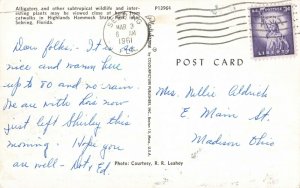 Alligators, and other subtropical wildlife and inter-
esting plants may be viewed close at hand, from
catwalks in Highlands Hammock State Park, near
Sebring, Florida.
P12964
MAR 3
1961
POST CARD
Dear folks:- It is so
nice and warm here
up to 80 and no rain.
We are with here now
just left Shirley this
morning. Hope you
are well - Dot, Ed
Mrs. Nellie Aldrich
E. Main St.
Madison Ohio
Photo: Courtesy, R. R. Leahey
3¢
LIBERTY